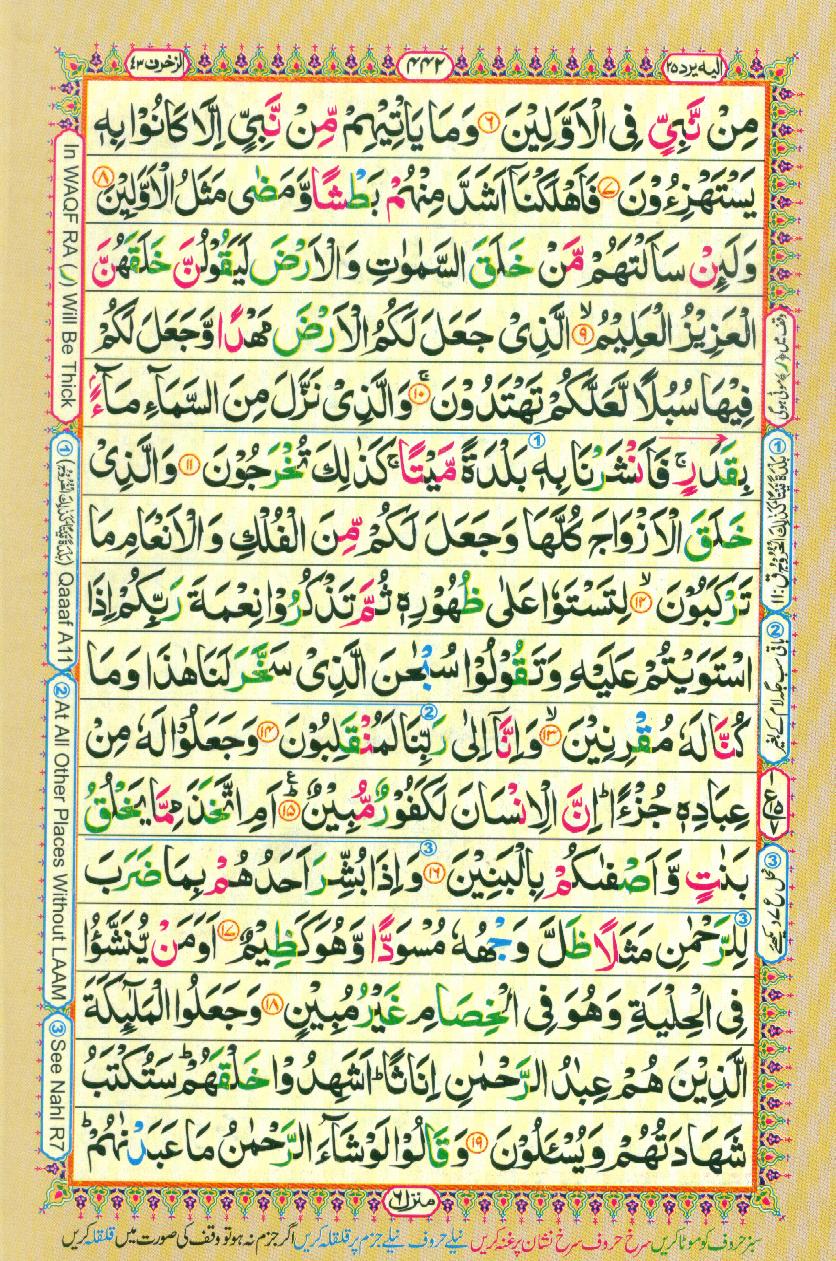 الیه یرد ۲۵
۴۴۲
الزخرف ۴۳
مِنْ نَّبِیٍّ فِی الْاَوَّلِیْنَ ۶ وَمَا یَاْتِیْهِمْ مِّنْ نَّبِیٍّ اِلَّا كَانُوْا بِهٖ
یَسْتَهْزِءُوْنَ ۷ فَاَهْلَكْنَاۤ اَشَدَّ مِنْهُمْ بَطْشًا وَّمَضٰی مَثَلُ الْاَوَّلِیْنَ ۸
وَلَىِٕنْ سَاَلْتَهُمْ مَّنْ خَلَقَ السَّمٰوٰتِ وَالْاَرْضَ لَیَقُوْلُنَّ خَلَقَهُنَّ
الْعَزِیْزُ الْعَلِیْمُ ۙ۹ الَّذِیْ جَعَلَ لَكُمُ الْاَرْضَ مَهْدًا وَّجَعَلَ لَكُمْ
فِیْهَا سُبُلًا لَّعَلَّكُمْ تَهْتَدُوْنَ ۚ۱۰ وَالَّذِیْ نَزَّلَ مِنَ السَّمَآءِ مَآءًۢ
بِقَدَرٍ ۚ فَاَنْشَرْنَا بِهٖ بَلْدَةً مَّیْتًا ۚ كَذٰلِكَ تُخْرَجُوْنَ ۱۱ وَالَّذِیْ
خَلَقَ الْاَزْوَاجَ كُلَّهَا وَجَعَلَ لَكُمْ مِّنَ الْفُلْكِ وَالْاَنْعَامِ مَا
تَرْكَبُوْنَ ۙ۱۲ لِتَسْتَوٗا عَلٰی ظُهُوْرِهٖ ثُمَّ تَذْكُرُوْا نِعْمَةَ رَبِّكُمْ اِذَا
اسْتَوَیْتُمْ عَلَیْهِ وَتَقُوْلُوْا سُبْحٰنَ الَّذِیْ سَخَّرَ لَنَا هٰذَا وَمَا
كُنَّا لَهٗ مُقْرِنِیْنَ ۙ۱۳ وَاِنَّاۤ اِلٰی رَبِّنَا لَمُنْقَلِبُوْنَ ۱۴ وَجَعَلُوْا لَهٗ مِنْ
عِبَادِهٖ جُزْءًا ؕ اِنَّ الْاِنْسَانَ لَكَفُوْرٌ مُّبِیْنٌ ؕ۱۵ اَمِ اتَّخَذَ مِمَّا یَخْلُقُ
بَنٰتٍ وَّاَصْفٰىكُمْ بِالْبَنِیْنَ ۱۶ وَاِذَا بُشِّرَ اَحَدُهُمْ بِمَا ضَرَبَ
لِلرَّحْمٰنِ مَثَلًا ظَلَّ وَجْهُهٗ مُسْوَدًّا وَّهُوَ كَظِیْمٌ ۱۷ اَوَمَنْ یُّنَشَّؤُا
فِی الْحِلْیَةِ وَهُوَ فِی الْخِصَامِ غَیْرُ مُبِیْنٍ ۱۸ وَجَعَلُوا الْمَلٰٓىِٕكَةَ
الَّذِیْنَ هُمْ عِبٰدُ الرَّحْمٰنِ اِنَاثًا ؕ اَشَهِدُوْا خَلْقَهُمْ ؕ سَتُكْتَبُ
شَهَادَتُهُمْ وَیُسْـَٔلُوْنَ ۱۹ وَقَالُوْا لَوْ شَآءَ الرَّحْمٰنُ مَا عَبَدْنٰهُمْ ؕ
منزل ۶
سبز حروف کو موٹا کریں سرخ حروف سرخ نشان پر غنہ کریں نیلے حروف نیلے جزم پر قلقلہ کریں اگر جزم نہ ہو تو وقف کی صورت میں قلقلہ کریں
In WAQF RA (ر) Will Be Thick
① (بَلْدَةً مَّیْتًا كَذٰلِكَ الْخُرُوْجُ) Qaaaf A11
② At All Other Places Without LAAM
③ See Nahl R7